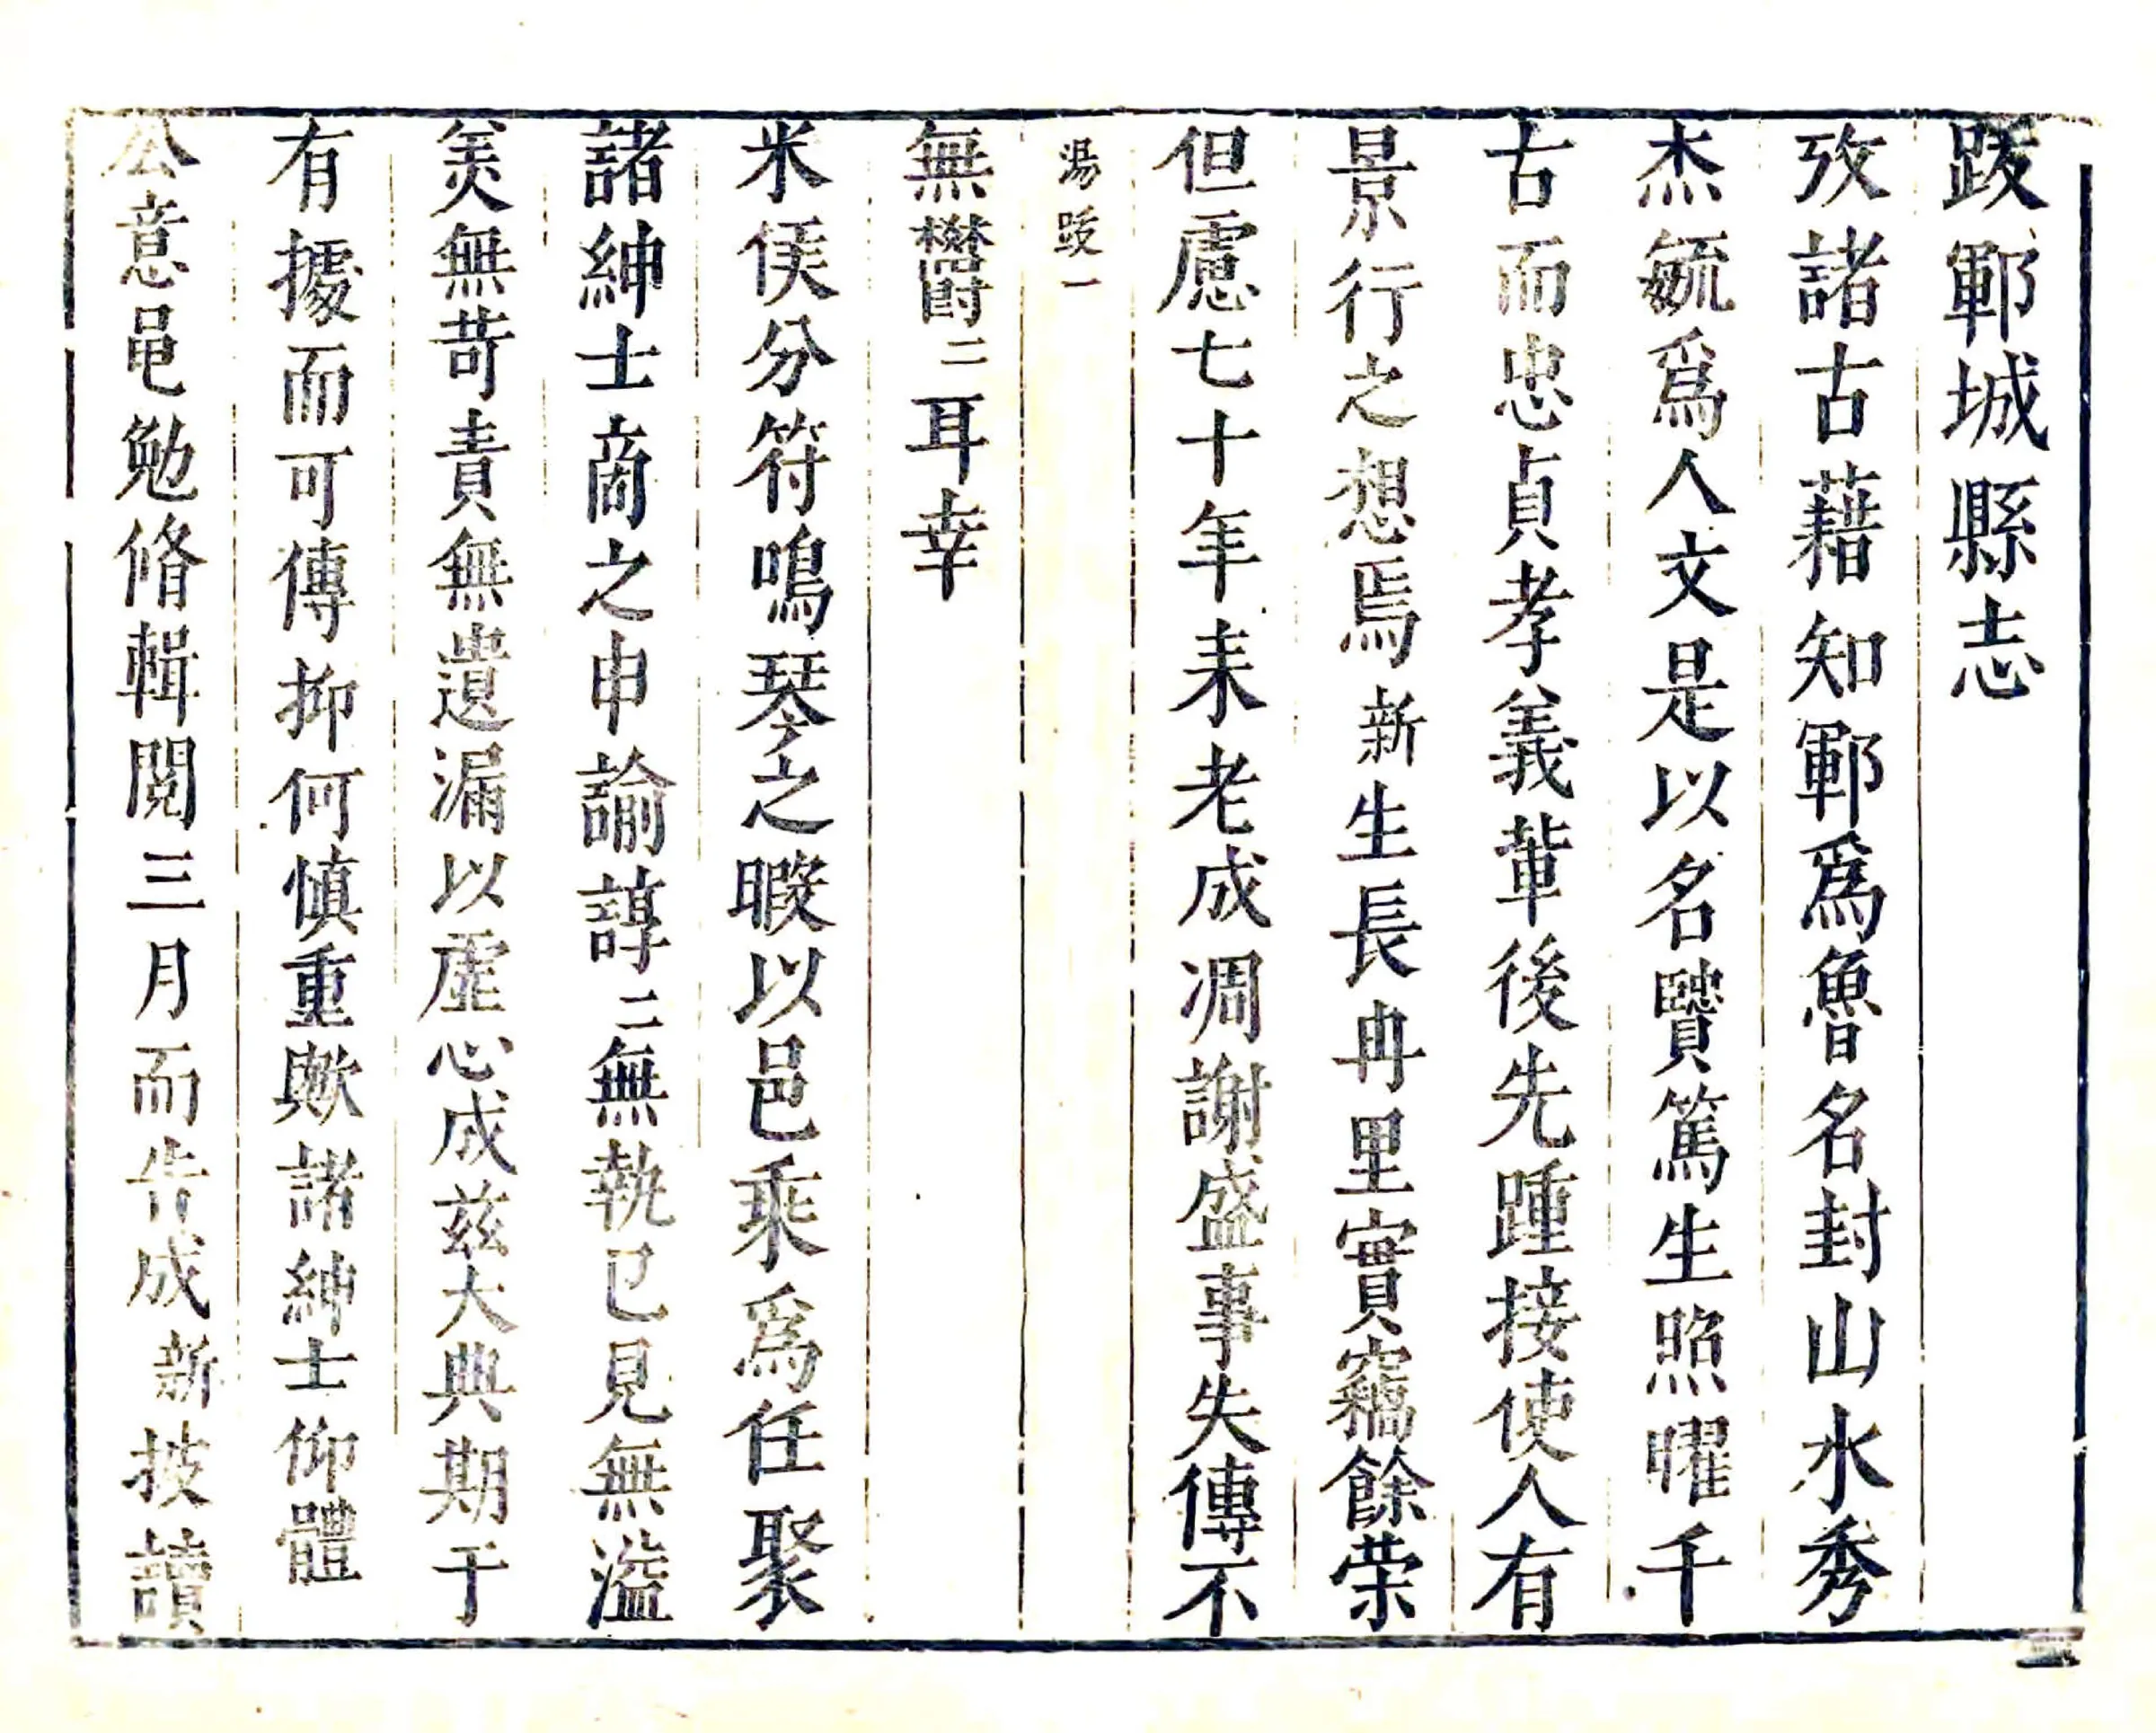 跋鄆城縣志
攷諸古藉知鄆爲魯名封山水秀
杰毓爲人文是以名賢篤生照曜千
古而忠貞孝義軰後先踵接使人有
景行之想焉新生長冉里實竊餘荣
但慮七十年来老成凋謝盛事失傳不
湯跋一
無欝二耳幸
米侯分符鳴琴之暇以邑乘爲任聚
諸紳士商之申諭諄二無執已見無溢
美無苛責無遺漏以虛心成茲大典期于
有據而可傳抑何慎重歟諸紳士仰體
公意黽勉脩輯閱三月而告成新披讀